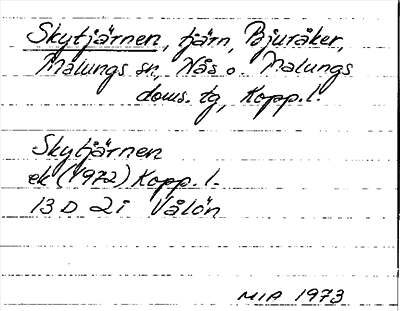 Skytjärnen, tjärn, Bjuråker,
Malungs sn, Nås o. Malungs
doms. tg, Kopp. l.
Skytjärnen
ek (1972) Kopp. l.
13 D 2i Vålön
MIA 1973